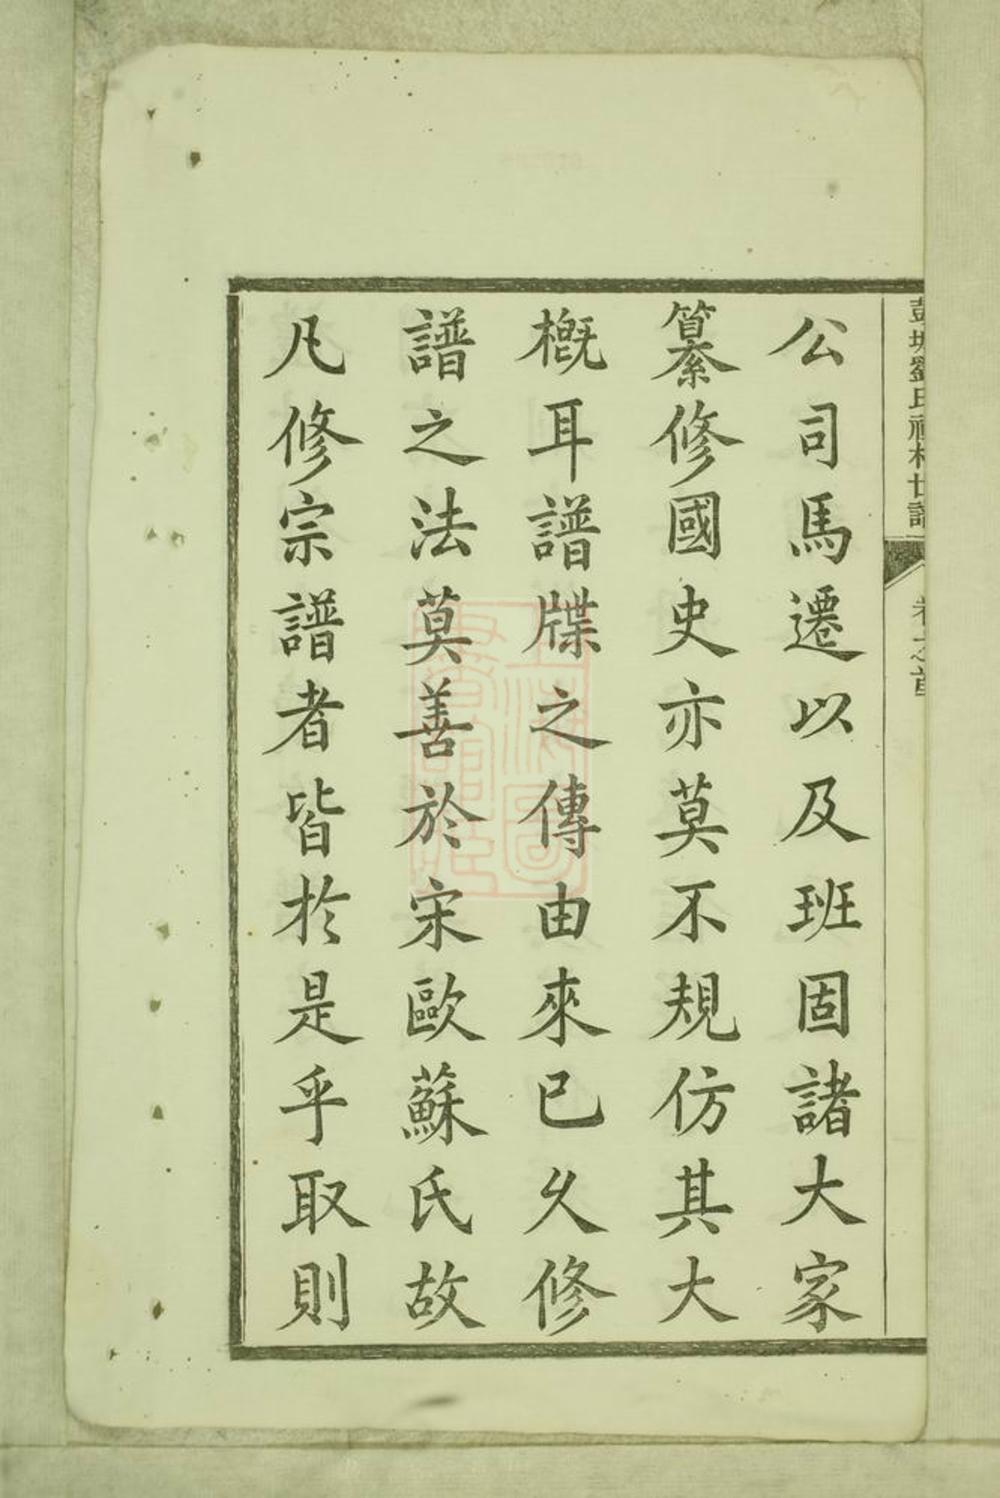 彭城劉氏祠村世譜
卷之首
公司馬遷以及班固諸大家
纂修國史亦莫不規仿其大
概耳譜牒之傳由來已久修
譜之法莫善於宋歐蘇氏故
凡修宗譜者皆於是乎取則